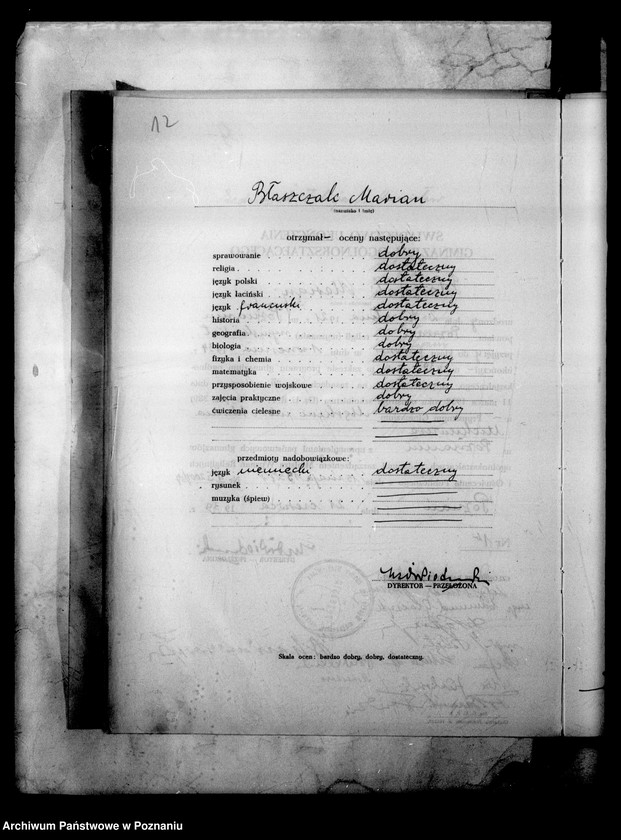 12
Błaszczak Marian
(nazwisko i imię)
otrzymał— oceny następujące:
sprawowanie dobry
religia dostateczny
język polski dostateczny
język łaciński dostateczny
język francuski dostateczny
historia dobry
geografia dobry
biologia dobry
fizyka i chemia dostateczny
matematyka dostateczny
przysposobienie wojskowe dostateczny
zajęcia praktyczne dobry
ćwiczenia cielesne bardzo dobry
przedmioty nadobowiązkowe:
język niemiecki dostateczny
rysunek
muzyka (śpiew)
DYREKTOR — PRZEŁOŻONA
Skala ocen: bardzo dobry, dobry, dostateczny.
Archiwum Państwowe w Poznaniu